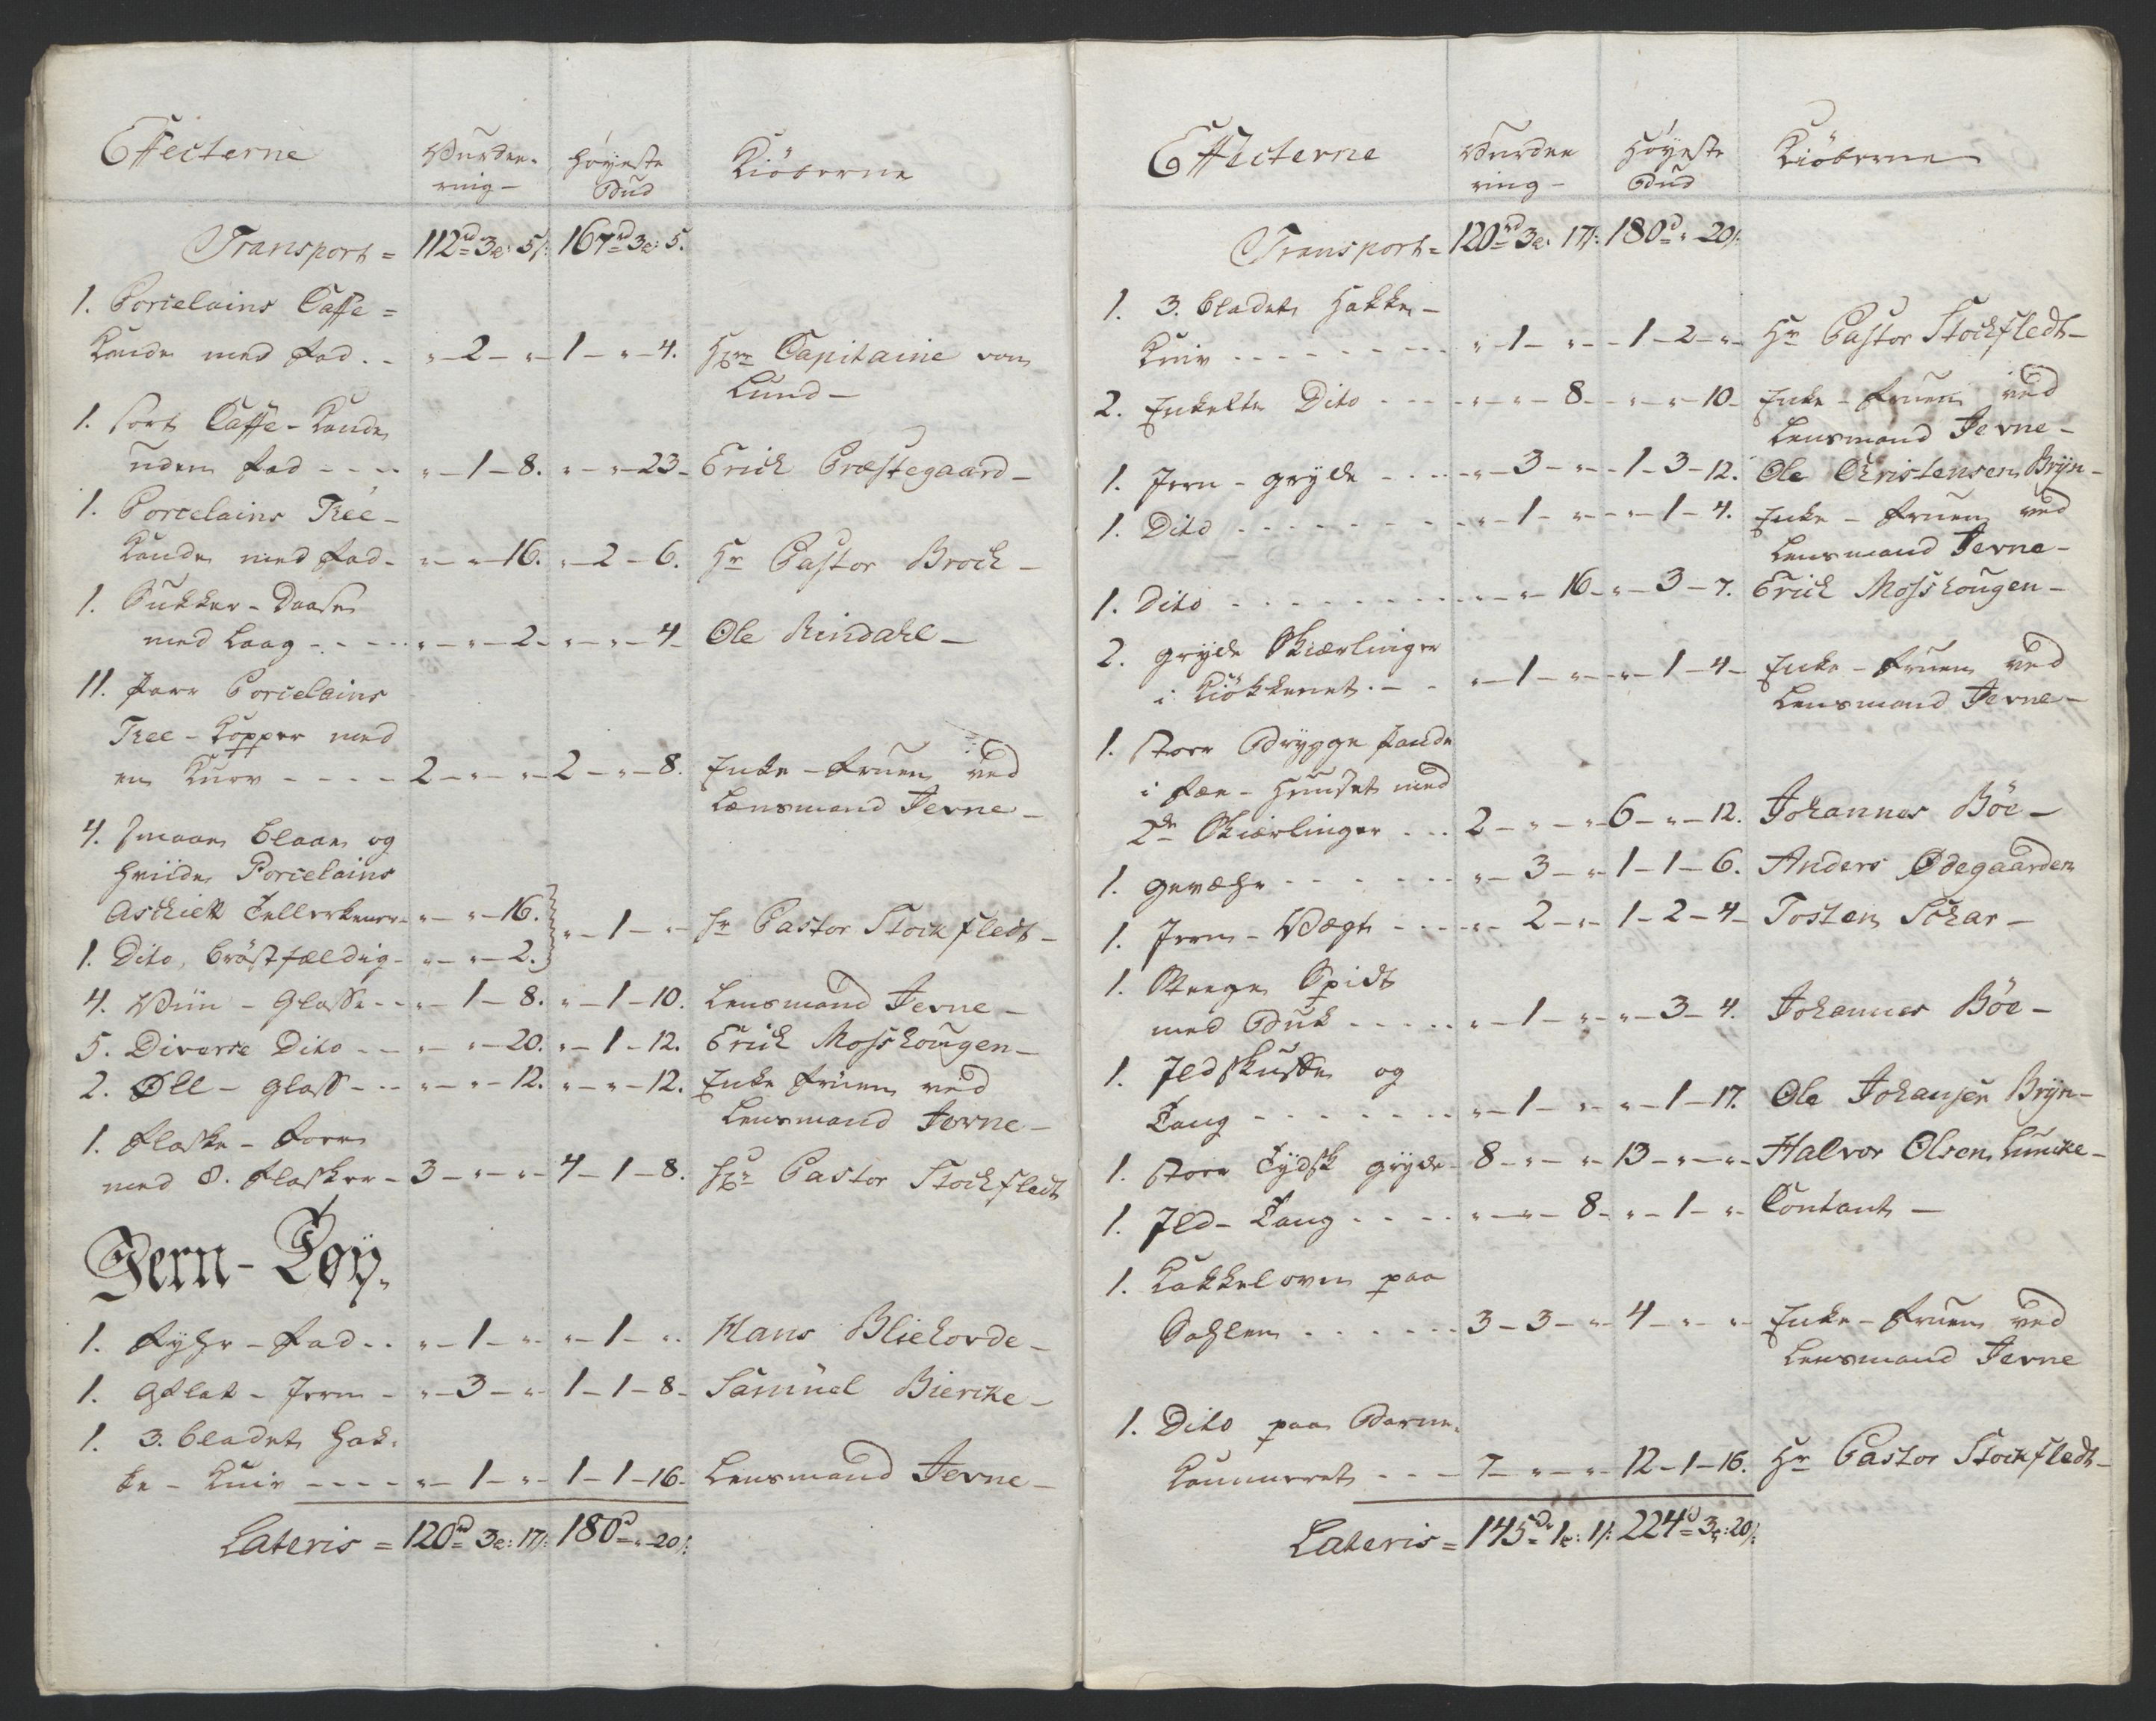 Effecterne Vurde- Høyeste Kiöberne
ring Bud
Transport = 112rd 3 5 167rd 3 5.
1. Porcelains Caffe =
Kande med Fad . . " - 2 - " 1 - " - 4. Hr Capitaine von
Lund -
1. Sort Caffe-Kande
uden Fad - - - - " - 1 - 8. " - " - 23 - Erich Præstegaard -
1. Porcelains Thee -
Kande med Fad - " - " - 16. " - 2 - 6. Hr Pastor Broch -
1. Sukker - Daase
med Laag - - - - " - " - 2 - " - " - 4 - Ole Rindahl -
11. Parr Porcelains
Thee - Kopper med
en Kurv - - - - 2 - " - " - 2 - " - 8. Enke - Fruen ved
Lænsmand Jevne -
4. smaae blaae og
hviide Porcelains
Aschiett Tellerkener - " - " - 16. } " - 1 - " - Hr Pastor Stockfledt -
1. Dito, bröstfældig - " - " - 2. }
4. Viin - Glasse - - " - 1 - 8. " - 1 - 10. Lensmand Jevne -
5. Diverse Dito - - " - " - 20. " - 1 - 12. Erich Mosshougen -
2. Øll - Glass - - - " - " - 12. " - " - 12. Enke Fruen ved
Lensmand Jevne -
1. Flaske - Foer
med 8. Flasker - 3 - " - " - 4 - 1 - 8. Hr Pastor Stockfledt
Jern - Töy.
1. Fyhr - Fad . . " - 1 - " " - 1 - " Hans Bliehovde -
1. Glat - Jern - " - 3 - " 1 - 1 - 8 - Samuel Biercke -
1. 3. bladet Hak-
ke - Kniv - - - - " - 1 - " - 1 - 1 - 16 - Lensmand Jevne -
Lateris = 120rd 3 17 180rd " 20
Effecterne Vurde Høyeste Kiöberne
ring - Bud
Transport = 120rd 3 17 180rd " 20
1. 3. bladet Hakke -
Kniv - - - - - " - 1 - " - 1 - 2 - " - Hr Pastor Stockfledt -
2. Enkelte Dito - - - " - " - 8 - " - " - 10 - Enke - Fruen ved
Lensmand Jevne -
1. Jern - gryde - - - " - 3 - " - 1 - 3 - 12. Ole Christensen Brÿn -
1. Dito - - - - - " - 1 - " - " - 1 - 4. Enke - Fruen ved
Lensmand Jevne -
1. Dito - - - - - " - " - 16 - " - 3 - 7. Erich Mosshougen -
2. gryde Skiærlinger
i Kiökkenet - - " - 1 - " - " - 1 - 4 - Enke - Fruen ved
Lensmand Jevne -
1. Stoer Brygge Pande
i Fæe - Huuset med
2de Skiærlinger - - 2 - " - " - 6 - " - 12. Johannes Böe -
1. gevæhr - - - - " - 3 - " 1 - 1 - 6. Anders Ødegaarden
1. Jern - Vægt - - - " - 2 - " - 1 - 2 - 4 - Tosten Schar -
1. Steege Spidt
med Buk - - - - " - 1 - " - " - 3 - 4. Johannes Böe -
1. Ildskuffe og
Tang - - - - - " - 1 - " - " - 1 - 17. Ole Johansen Brÿn -
1. stoer Tydsk gryde - 8 - " - " - 13 - " - " - Halvor Olsen Luncke -
1. Ild - Tang - - - " - " - 8 - " - 1 - " Contant -
1. Kakkelovn paa
Sahlen - - - - - 3 - 3 - " 4 - " - " Enke - Fruen ved
Lensmand Jevne
1. Dito paa Barne-
kammeret - - - 7 - " - " - 12 - 1 - 16. Hr Pastor Stockfledt -
Lateris = 145rd 1 1 224rd 3 20